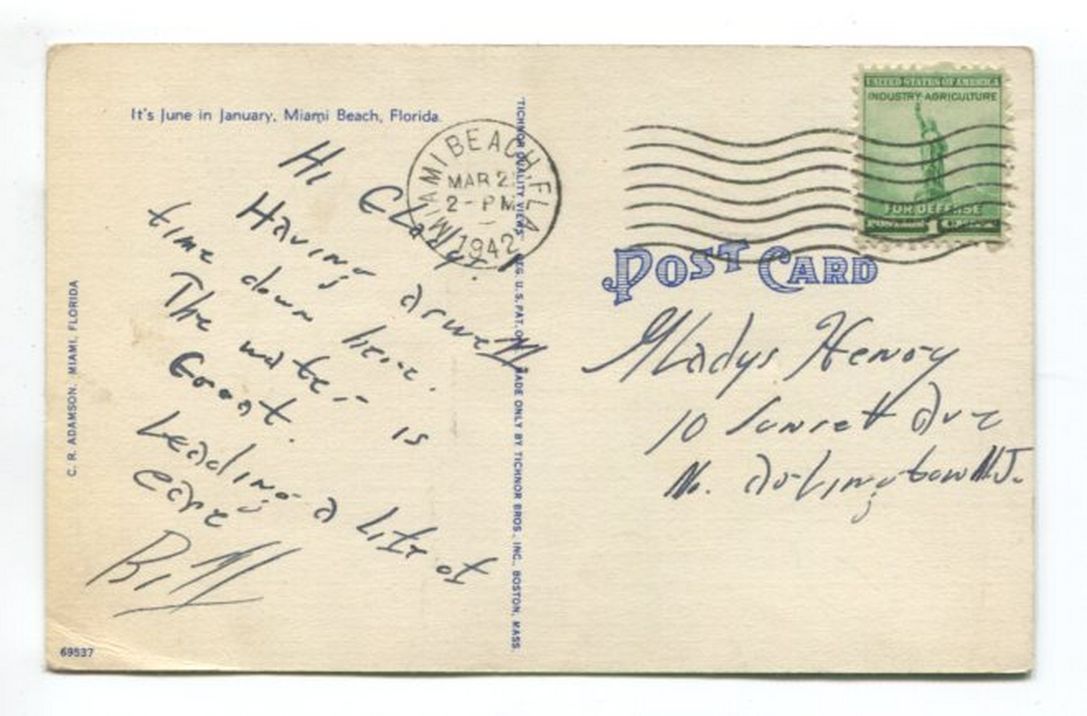 It's June in January, Miami Beach, Florida
Hi
Having a swell
time down here.
The water is
Great.
Leading a life of
ease
Bill
C. R. ADAMSON, MIAMI, FLORIDA
69537
MIAMI BEACH, FLA.
MAR 2
2 - PM
1942
"TICHNOR QUALITY VIEWS," REG. U. S. PAT. OFF. MADE ONLY BY TICHNOR BROS. INC., BOSTON, MASS.
UNITED STATES OF AMERICA
INDUSTRY AGRICULTURE
FOR DEFENSE
1
POST CARD
Gladys Henry
10 Sunset Ave
No. Arlington N.J.